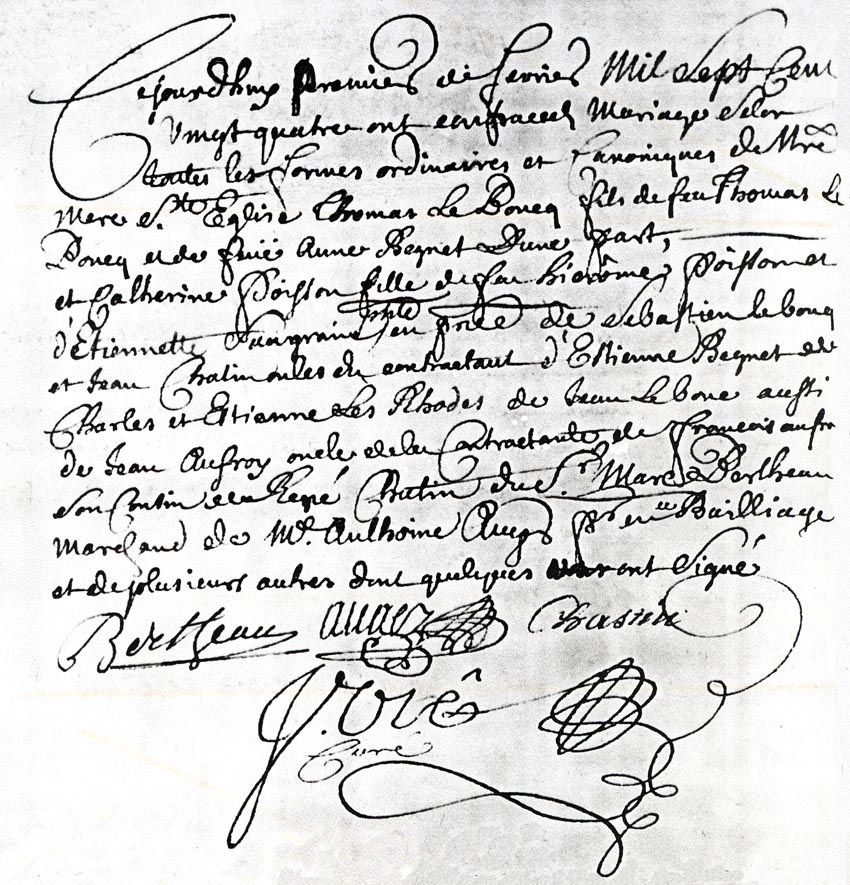 Cejourdhuy premier de fevrier Mil Sept Cent
Vingt quatre ont contracté Mariage Selon
toutes les formes ordinaires et Canoniques de Nre
Mere Ste Eglise Thomas Le Boucq fils de feu Thomas Le
Boucq et de feüe Anne Begnet Dune part,
et Catherine Poisson fille de feu hierôme Poisson et
d'Etiennette en pnce de Sebastien le boucq
et Jean Chatin oncles du contractant d'Estienne Begnet de
Charles et Estienne Les Rhodes de Jean Le bouc aussi
de Jean Aufroy oncle de la Contractante de francois aufr
Son Cousin de René Chatin du Sr. Marc Bertheau
Marchand de Me. Anthoine Auger Pr en Bailliage
et de plusieurs autres dont quelques uns ont Signé
Bertheau auger Chastin
J. Oré
Curé